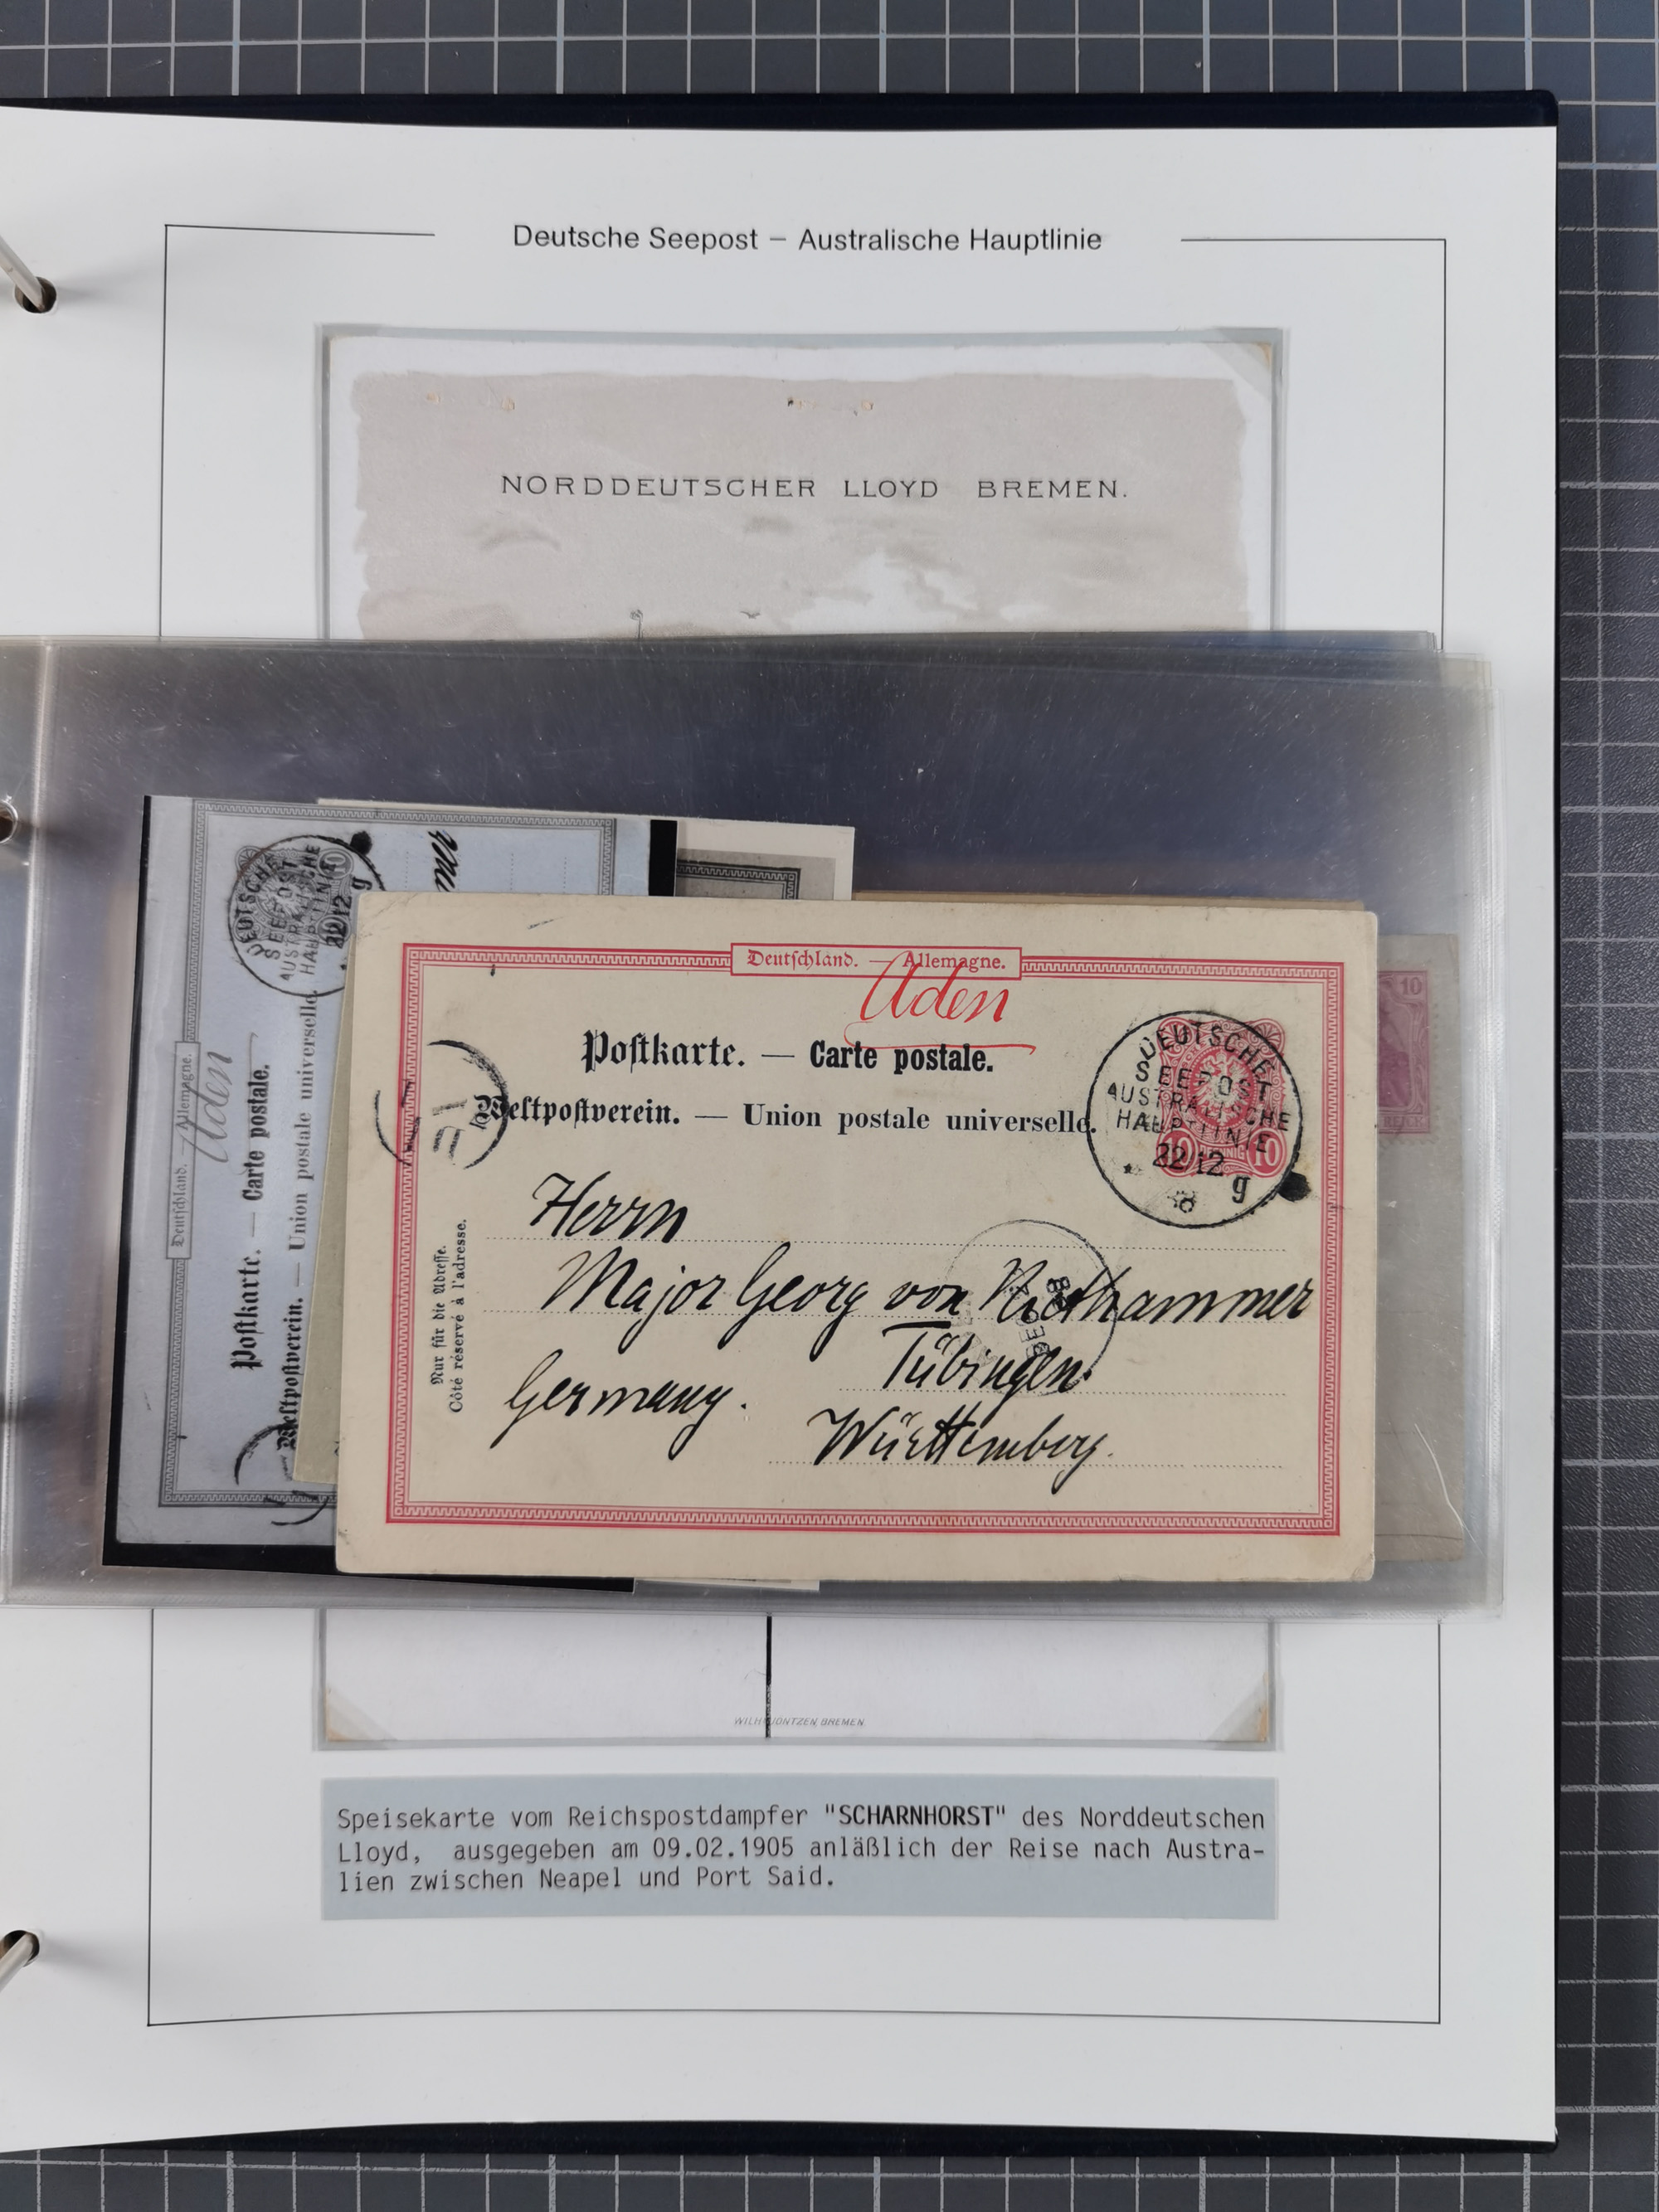 Deutsche Seepost – Australische Hauptlinie
NORDDEUTSCHER LLOYD BREMEN.
DEUTSCHE
SEEPOST
AUSTRALISCHE
HAUPTLINIE
22 12
g
Deutschland. — Allemagne.
Aden
Postkarte. — Carte postale.
Weltpostverein. — Union postale universelle.
Deutschland. — Allemagne.
Aden
Postkarte. — Carte postale.
Weltpostverein. — Union postale universelle.
DEUTSCHE
SEEPOST
AUSTRALISCHE
HAUPTLINIE
22 12
g
10 PFENNIG 10
Nur für die Adresse.
Côté réservé à l'adresse.
Herrn
Major Georg von Niethammer
Tübingen.
Germany.
Württemberg.
10
REICH
WILH. JÖNTZEN, BREMEN
Speisekarte vom Reichspostdampfer "SCHARNHORST" des Norddeutschen
Lloyd, ausgegeben am 09.02.1905 anläßlich der Reise nach Austra-
lien zwischen Neapel und Port Said.